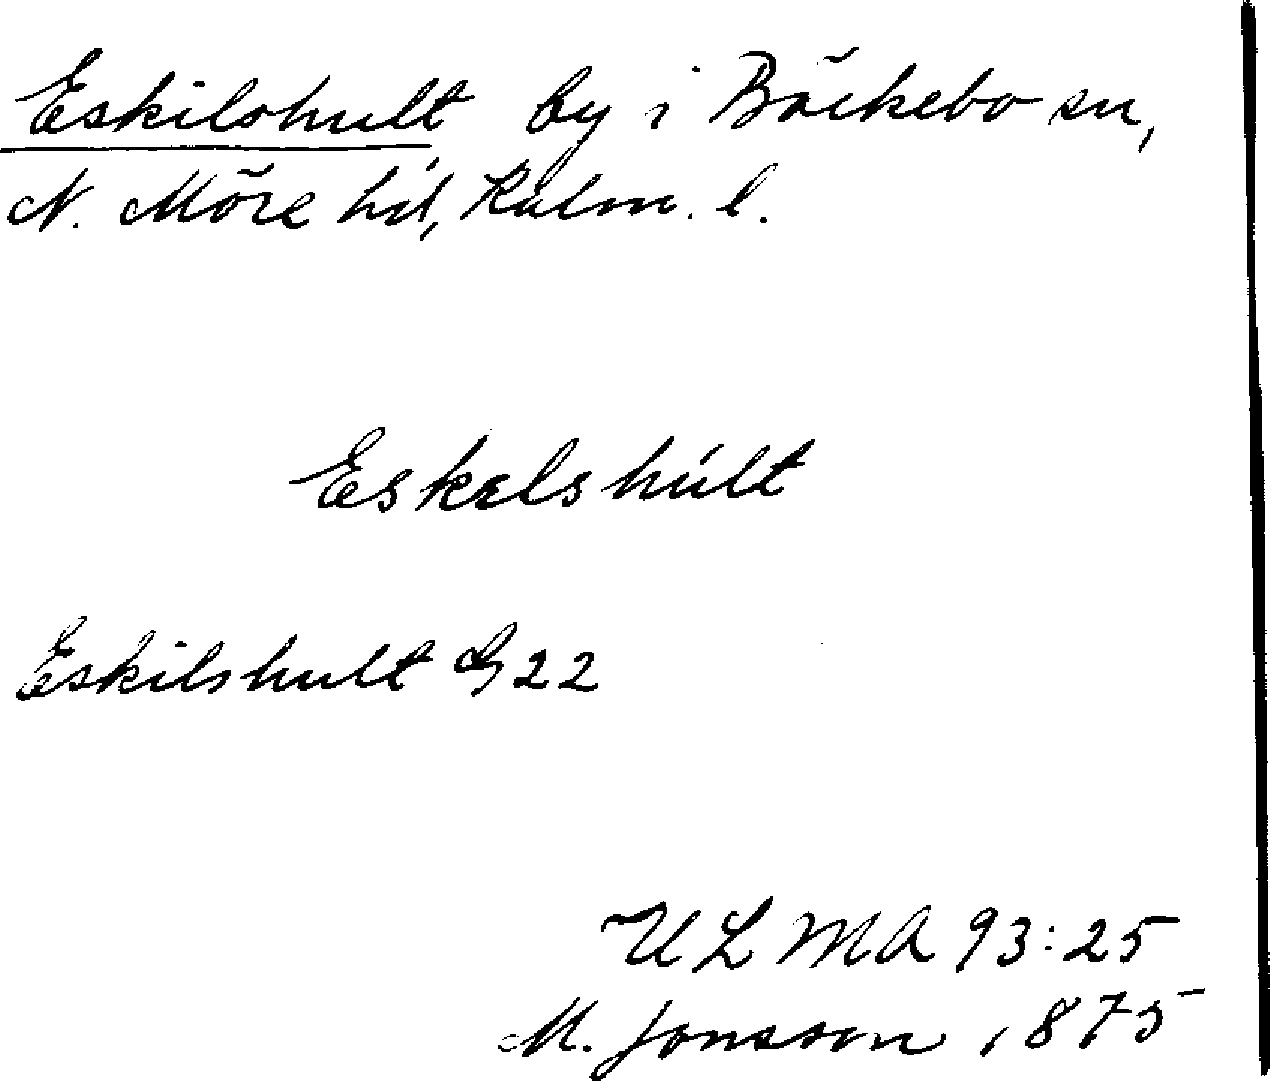 Eskilshult by i Bäckebo sn,
N. Möre hd, Kalm. l.
Eskelshúlt
Eskilshult G 22
ULMA 93:25
M. Jonsson, 1875